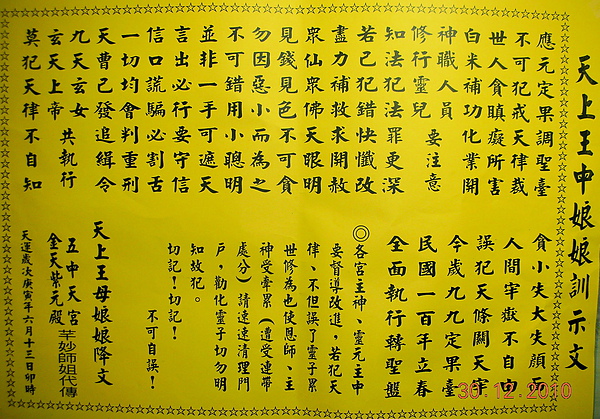 天上王中娘娘訓示文
應元定果調聖臺
不可犯戒天律裁
世人貪瞋癡所害
白米補功化業開
神職人員
修行靈兒 要注意
知法犯法罪更深
若己犯錯快懺改
盡力補救求開赦
眾仙眾佛天眼明
見錢見色不可貪
勿因惡小而為之
不可錯用小聰明
並非一手可遮天
言出必行要守信
信口謊騙必割舌
一切均會判重刑
天曹已發追緝令
九天玄女
玄天上帝 共執行
莫犯天律不自知
貪小失大失顏面
人間牢獄不自由
誤犯天條關天牢
今歲九九定果臺
民國一百年立春
全面執行轉聖盤
◎各宮主神、靈元主中
要督導改進,若犯天
律、不但誤了靈子累
世修為也使恩師、主
神受牽累(遭受連帶
處分)請速速清理門
戶,勸化靈子切勿明
知故犯。
切記!切記!
不可自誤!
天上王母娘娘降文
五中天宮
金天紫元殿 芊妙師姐代傳
天運歲次庚寅年六月十三日卯時
30.12.2010